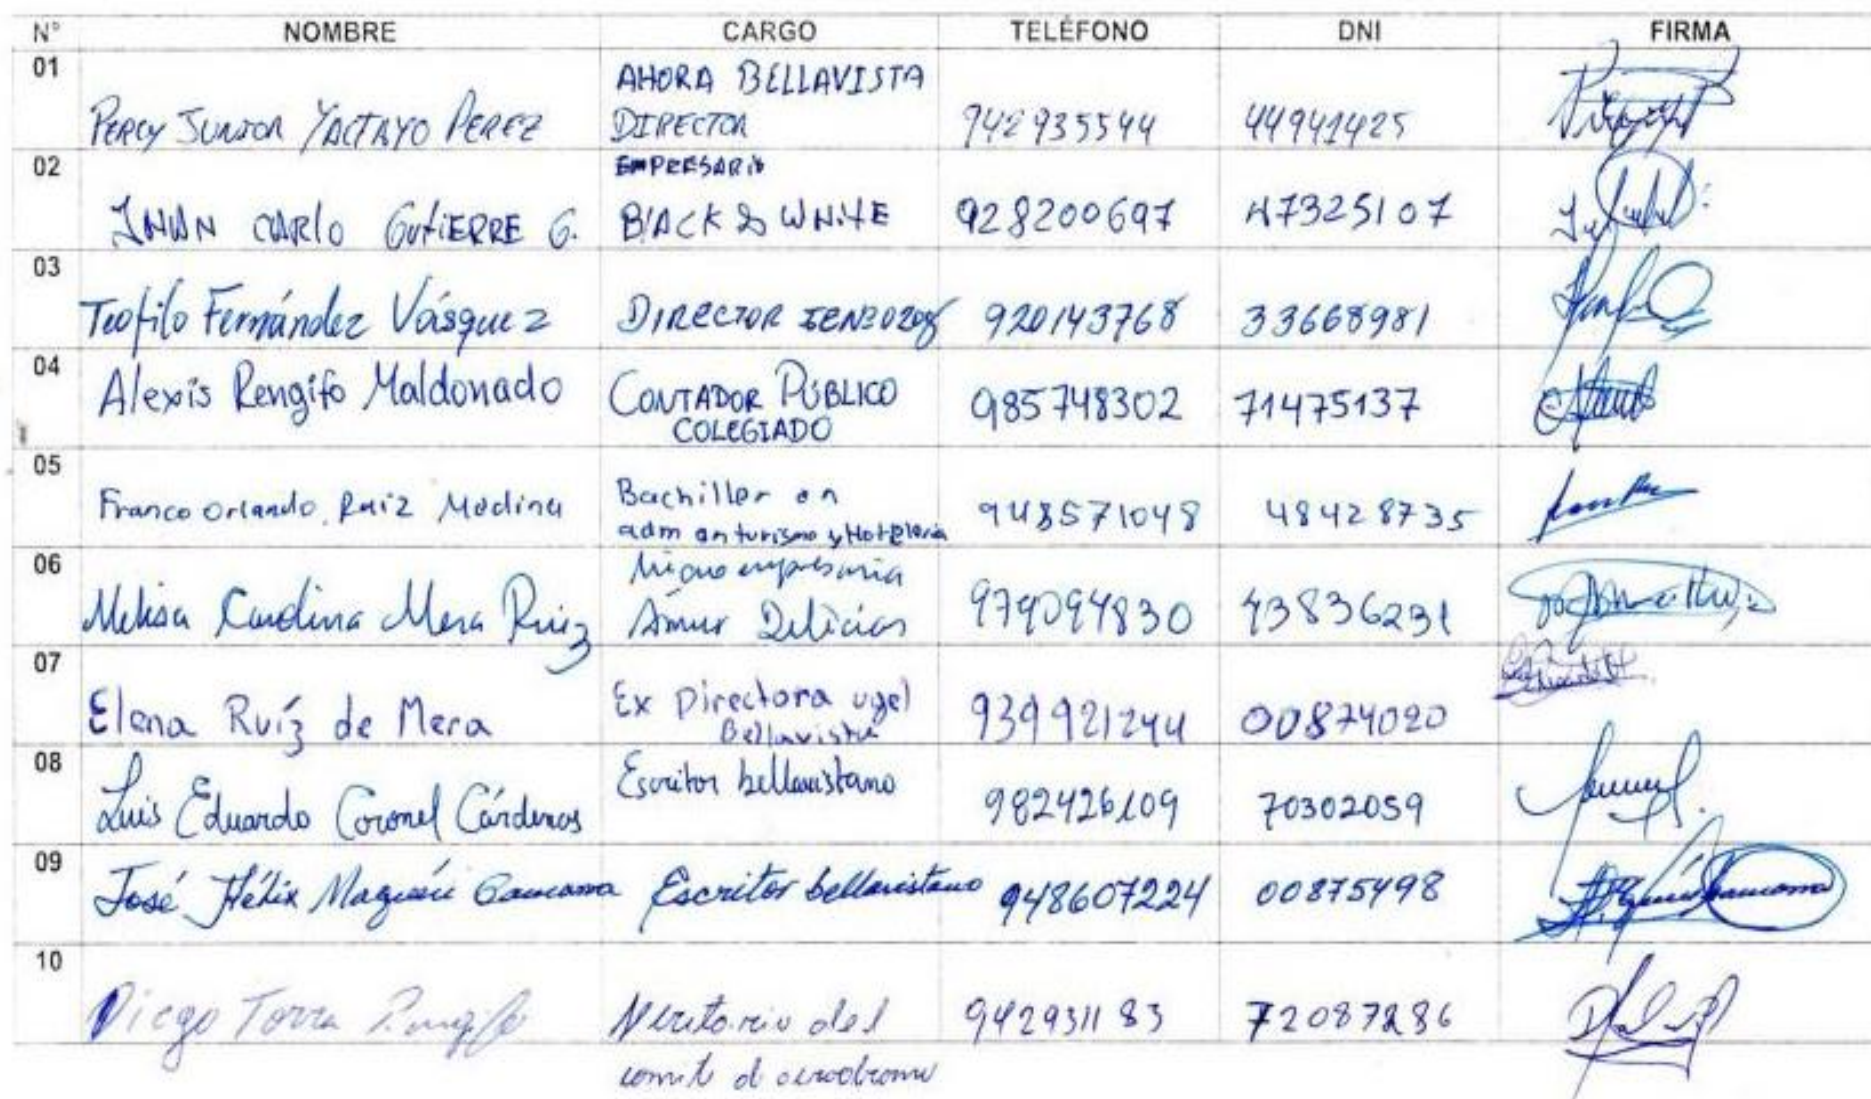 N° NOMBRE CARGO TELÉFONO DNI FIRMA
01 PERCY JUNIOR YACTAYO PEREZ AHORA BELLAVISTA DIRECTOR 942935544 44941425
02 CARLO GUTIERRE G. EMPRESARIO BLACK & WHITE 928200697 47325107
03 Teofilo Fernández Vásquez DIRECTOR 920143768 33668981
04 Alexis Rengifo Maldonado CONTADOR PÚBLICO COLEGIADO 985748302 71475137
05 Franco Orlando Ruiz Medina Bachiller en adm en turismo y Hoteleria 948571048 48428735
06 Melisa Carolina Mera Ruiz Microempresaria Amur Delicias 979094830 43836231
07 Elena Ruíz de Mera Ex Directora ugel Bellavista 939921244 00874020
08 Luis Eduardo Coronel Cárdenas Escritor bellavistano 982426109 70302059
09 José Félix Escritor bellavistano 948607224 00875498
10 Diego Torra Rengifo del comite d aerodromo 942931183 72087286